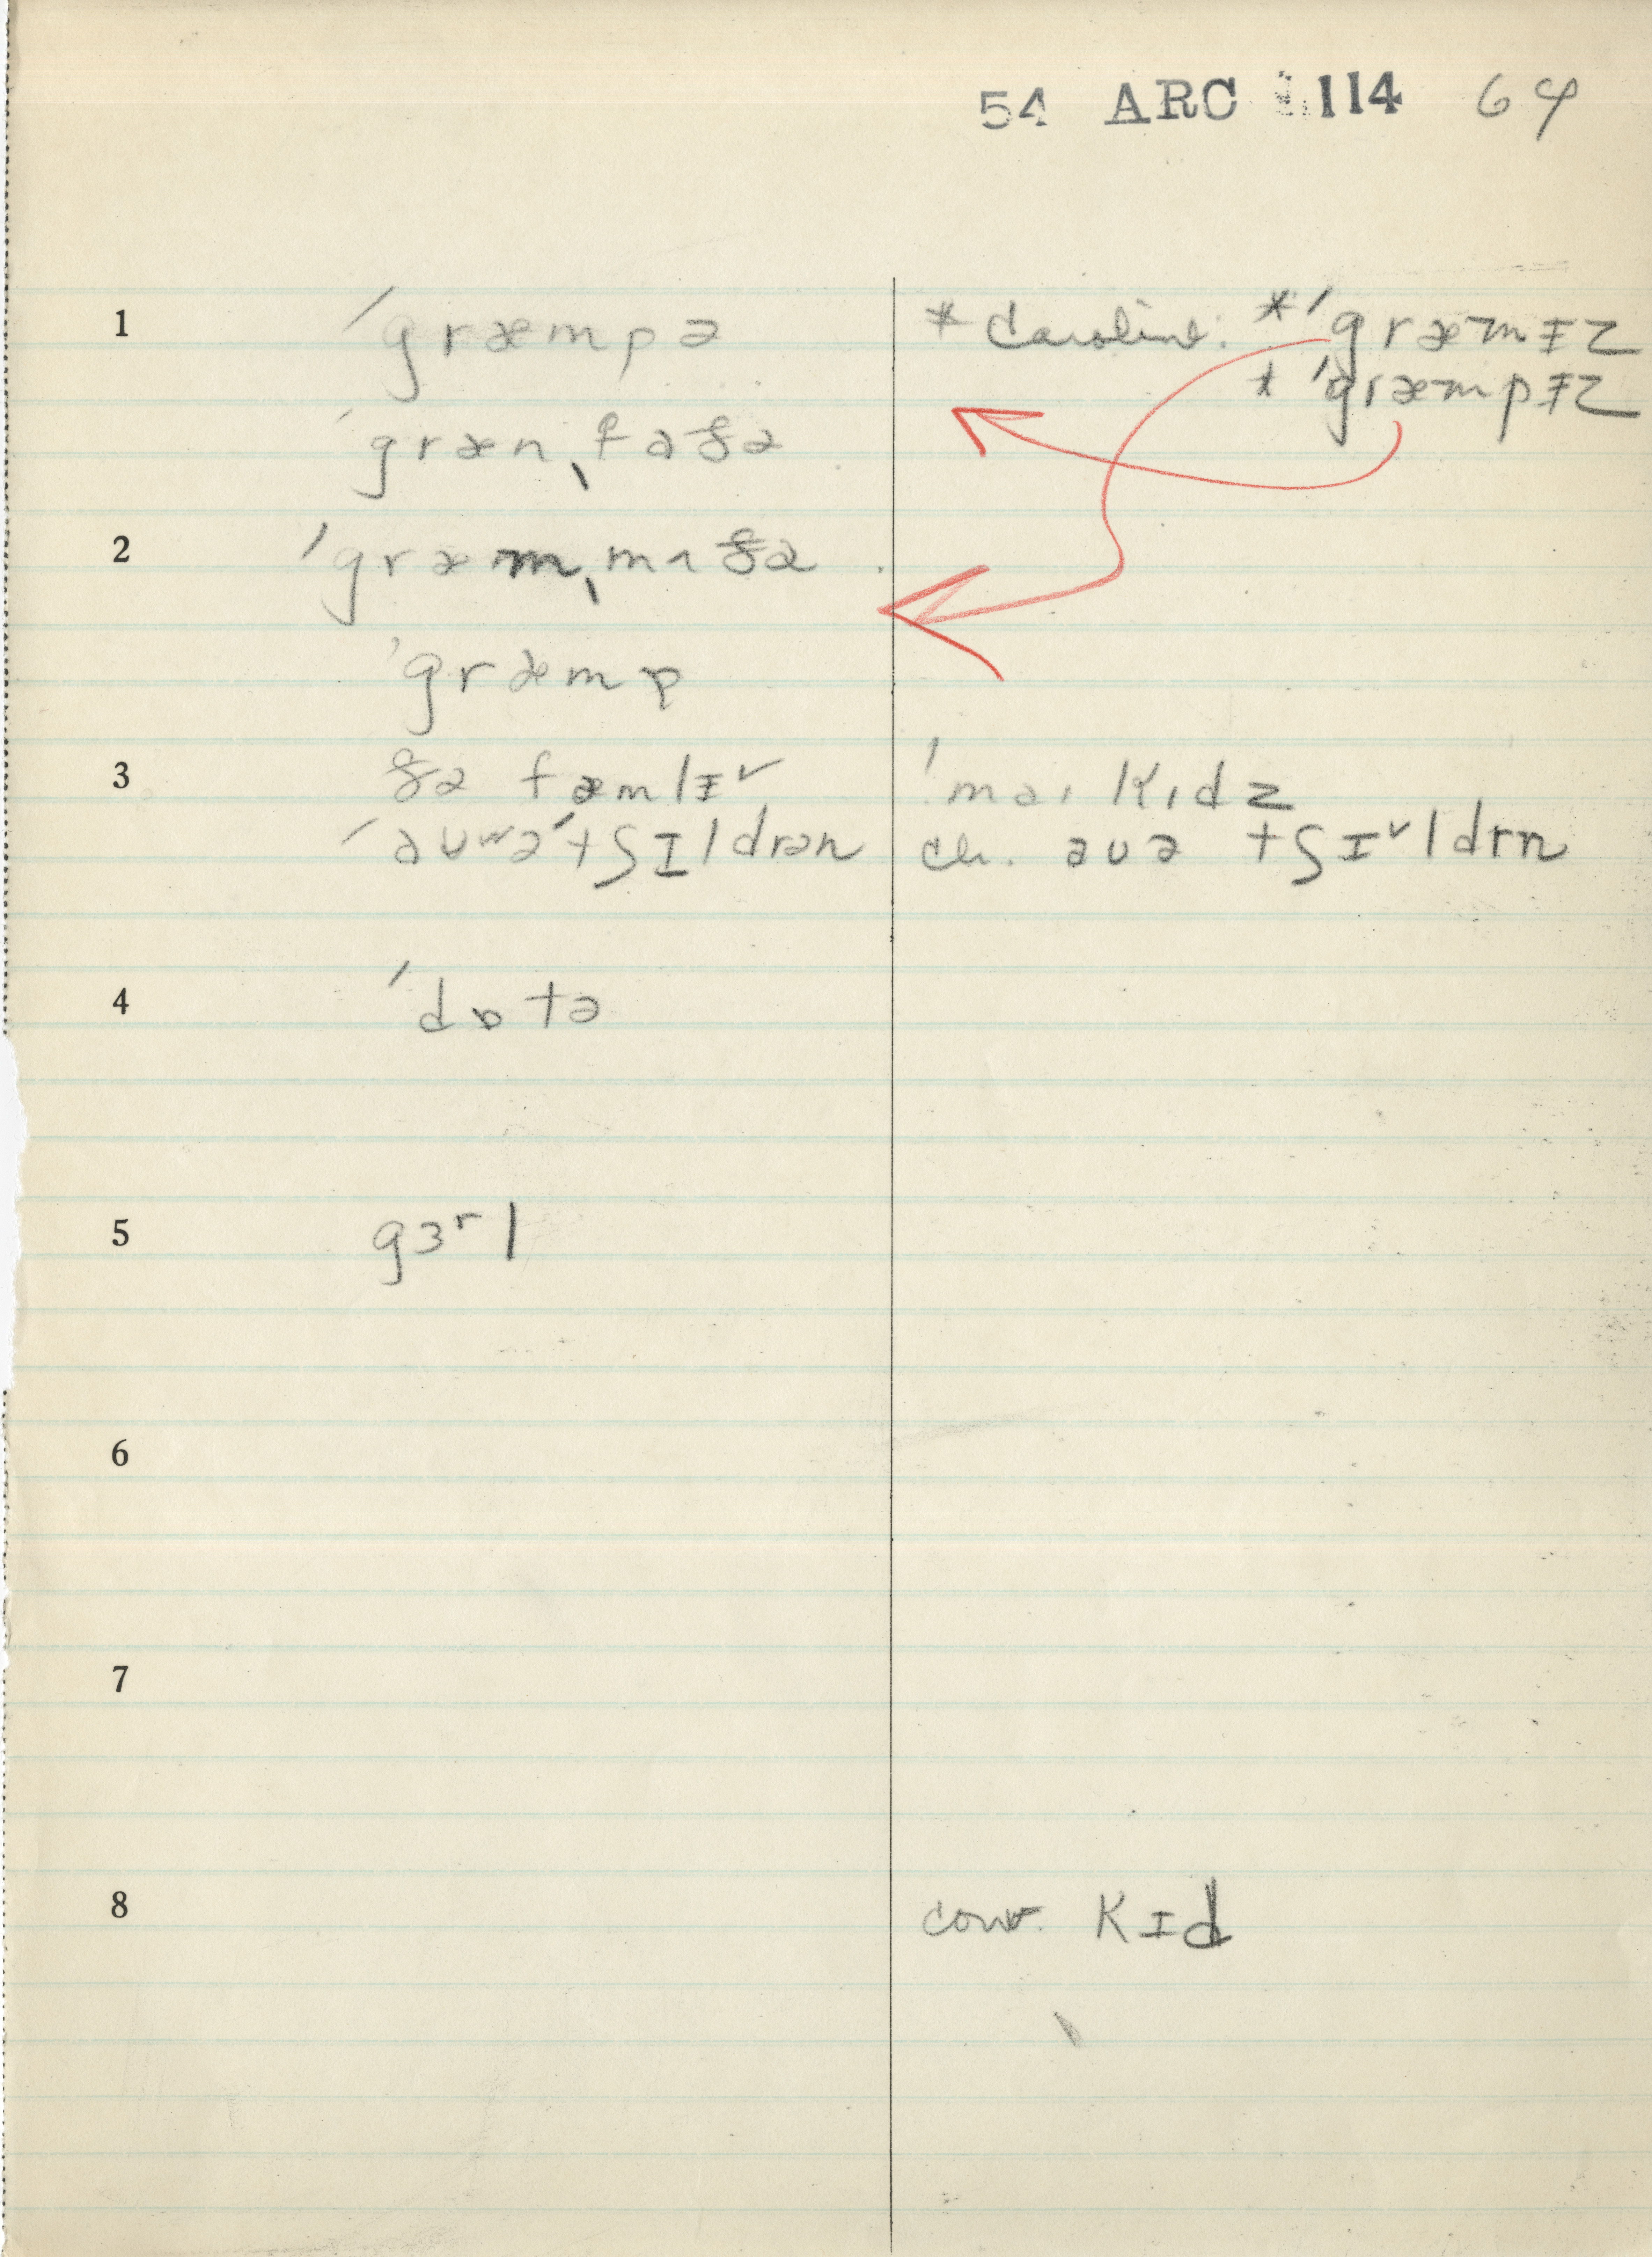 54 ARC 1114 64
1 ˈgræmpə * Caroline: *ˈgræmɨz
* ˈgræmpɨz
ˈgrænˌfaðə
2 ˈgræmˌmʌðə
ˈgræmp
3 ðə fæmlɨ˅ ˈmaɪ kɪdz
ˈaʊʷə ˈtʃɪldrən ch. aʊə tʃɪ˅ldrn
4 ˈdɒtə
5 gɜʳl
6
7
8 conv. kɪd